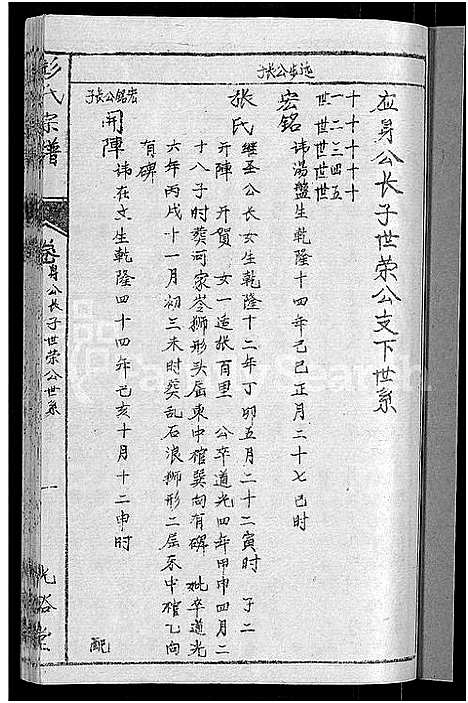 应身公长子世荣公支下世系
十一世
十二世
十三世
十四世
十五世
远步公长子
宏铭 讳汤盘生乾隆十四年己巳正月二十七巳时
张氏 继圣公长女生乾隆十二年丁卯五月二十二寅时 子二
开阵 开贺 女一适张百里 公卒道光四年甲申四月二
十八子时葬河家岺狮形头屈东中棺巽向有碑 妣卒道光
六年丙戌十一月初三未时葬乱石浪狮形二屈东中棺乙向
有碑
宏铭公长子
开阵 讳在文生乾隆四十四年己亥十月十二申时
配
彭氏宗谱
卷 身公长子世荣公世系
一
光裕堂